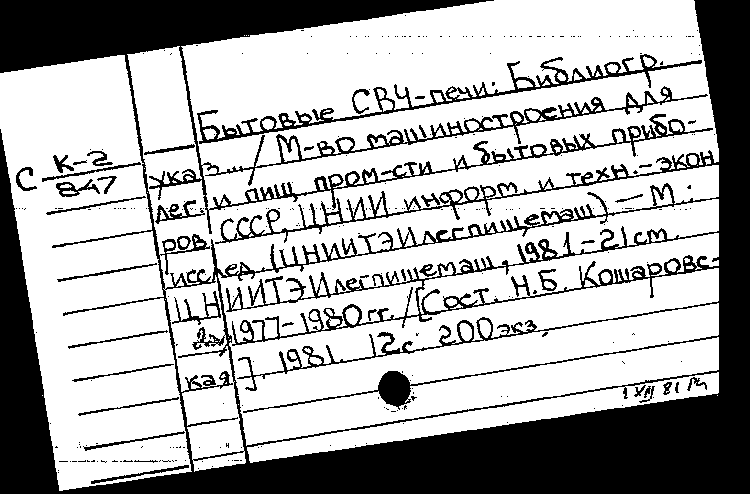 Бытовые СВЧ-печи: Библиогр.
С К-2
847
указ... / М-во машиностроения для
лег. и пищ. пром-сти и бытовых прибо-
ров СССР, ЦНИИ информ. и техн.-экон
исслед. (ЦНИИТЭИлегпищемаш) — М.:
ЦНИИТЭИлегпищемаш, 1981.-21 см.
1977-1980 гг. / [Сост. Н.Б. Кошаровс-
кая]. 1981. 12 с. 200 экз.
1 XII 81